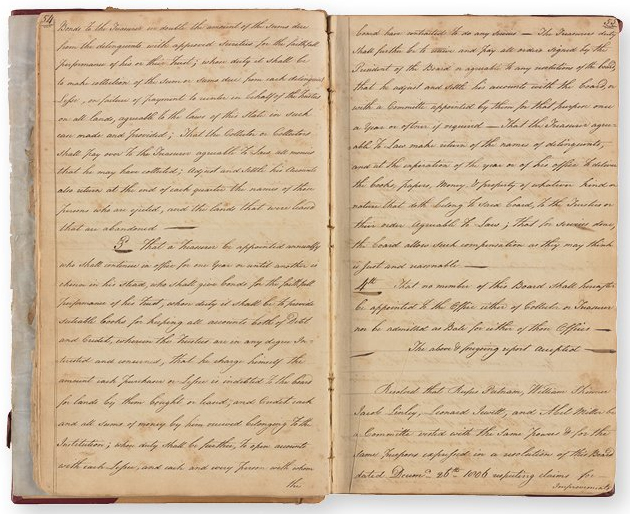 54
Bonds to the Treasurer in double the amount of the sums due
from the delinquents with approved Sureties for the faithfull
performance of his or their trust; whose duty it shall be
to make collection of the sum or sums due from each delinquent
Lessee, on failure of payment to reenter in behalf of the Trustees
on all lands, agreable to the laws of this State in such
case made and provided; That the Collector or Collectors
shall pay over to the Treasurer agreable to Law, all monies
that he may have collected; Adjust and Settle his Accounts
also return at the end of each quarter the names of those
persons who are quited, and the lands that were leased
that are abandoned
3d That a Treasurer be appointed annually
who shall continue in office for one Year or until another is
chosen in his stead, who shall give bonds for the faithfull
performance of his trust, whose duty it shall be to provide
suteable books for keeping all accounts both of Debt
and Credit, wherein the Trustees are in any degree In-
terested and concerned, that he charge himself the
amount each Purchaser or Lessee is indebted to the board
for lands by them bought or leased, and Credit each
and all sums of money by him received belonging to the
Institution; whose duty shall be further, to open accounts
with each Lessee, and each and every person with whom
the
55
board have contracted to do any — The Treasurers duty
shall further be to and pay all orders signed by the
President of the Board agreable to any resolutions of the board,
that he adjust and settle his accounts with the board, or
with a Committe appointed by them for that purpose once
a Year or oftner if required — That the Treasurer agree-
able to Law make return of the names of delinquents,
and at the experation of the year or of his office to deliver
the books, papers, Money, & property of whatever kind or
nature that doth belong to said board, to the Trustees or
their order Agreable to Law; that for services done,
the board allow such compensation as they may think
is just and reasonable
4th That no member of this Board shall hereafter
be appointed to the Office either of Collector or Treasurer
nor be admitted as Bale for either of those Offices
The above & foregoing report Accepted
Resolved that Rufus Putnam, William Skinner
Jacob Lindly, Leonard Jewett, and Abel Miller be
a Committe vested with the same powers & for the
same purposes expressed in a resolution of this Board
dated Decemr 26th 1806 respecting claims for
Improvements